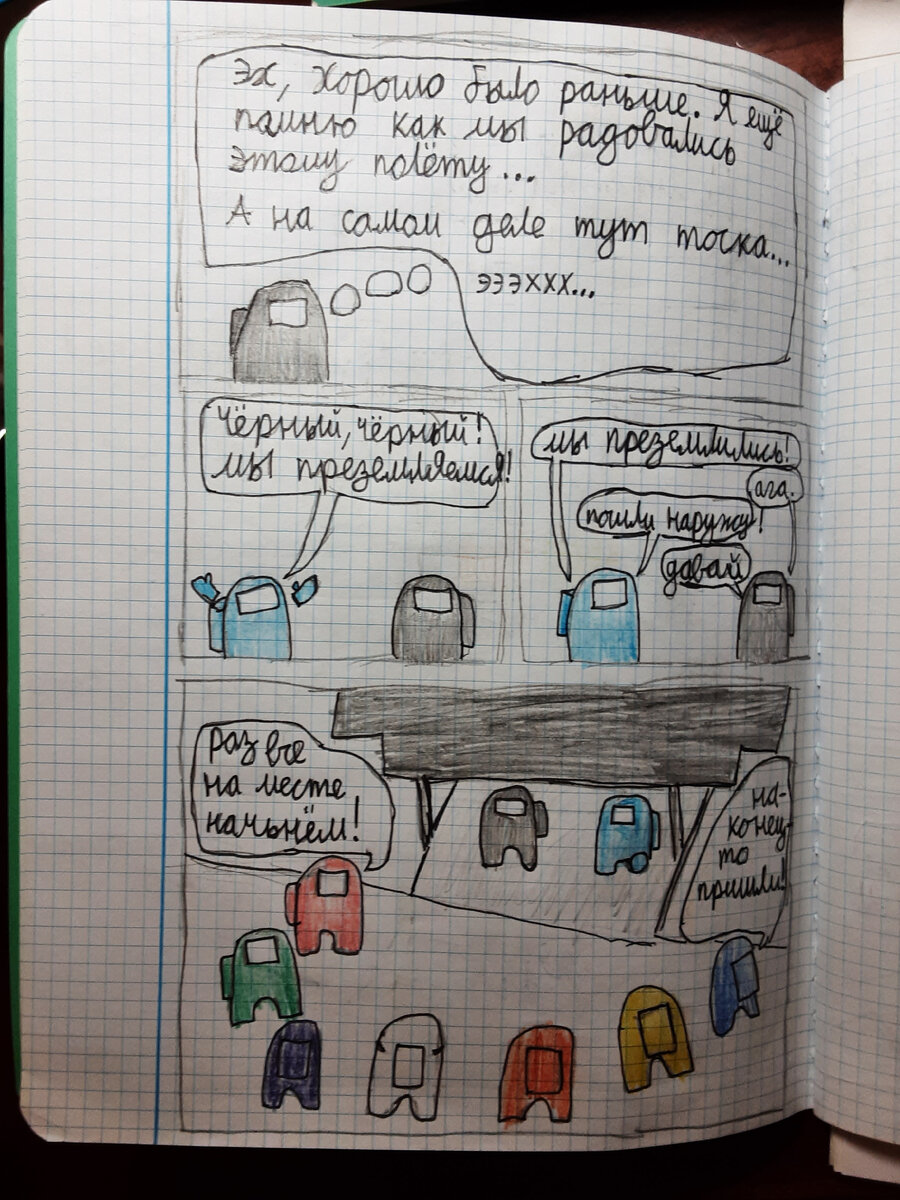 Эх, хорошо было раньше. Я ещё
помню как мы радовались
этому полёту...
А на самом деле тут тоска...
эээххх...
Чёрный, чёрный!
мы преземляемся!
мы преземлились!
ага.
пошли наружу!
давай
Раз все
на месте
начьнём!
на-
конец-
то
пришли!